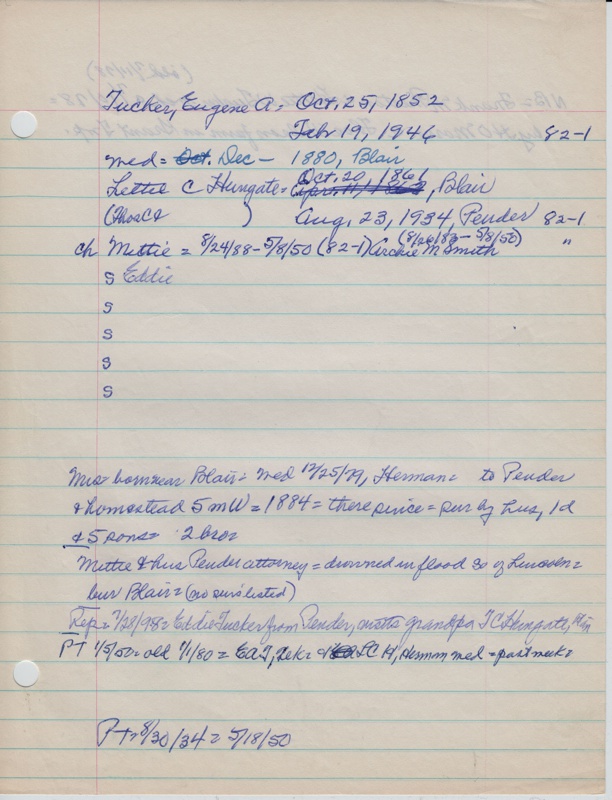 Tucker, Eugene A = Oct, 25, 1852
Feb 19, 1946 82-1
med = Dec - 1880, Blair
Oct. 20, 1861
Lettie C Hungate = Apr. 11, 1862, Blair
) Aug, 23, 1934 Pender 82-1
(8/26/83 - 5/8/50)
ch Mettie = 8/24/88 - 5/8/50 (82-1) Archie M Smith "
S Eddie
S
S
S
S
S
Mrs = born near Blair = med 12/25/79, Herman = to Pender
& homestead 5 m W = 1884 = there since = sur by hus, 1 d
& 5 sons = 2 bros
Mettie & hus Pender attorney = drowned in flood So of Lincoln =
bur Blair = (no surs listed)
7/28/98 = Eddie Tucker from Pender, grandpa T C Hungate,
PT 1/5/50 = old 7/1/80 = E A T, Tek = & L C H, Herman med = past week =
PT = 8/30/34 = 5/18/50